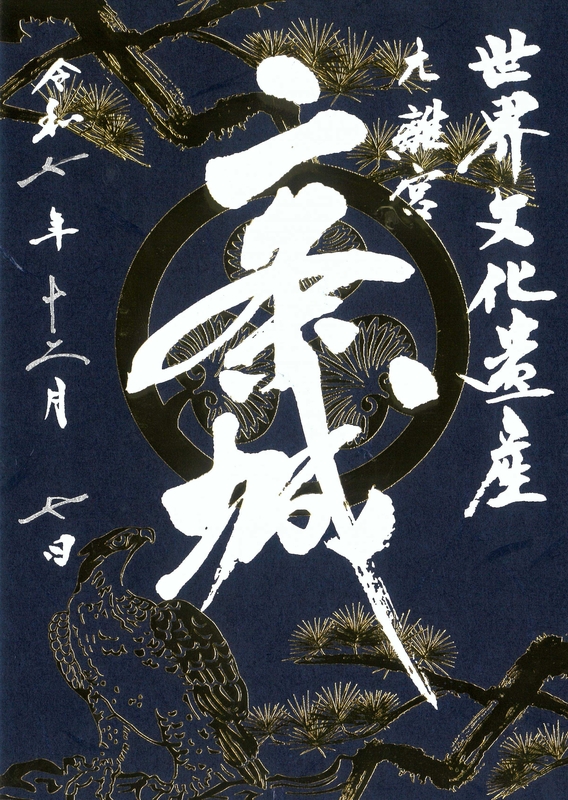 世界文化遺産
元離宮
二条城
令和七年十二月七日